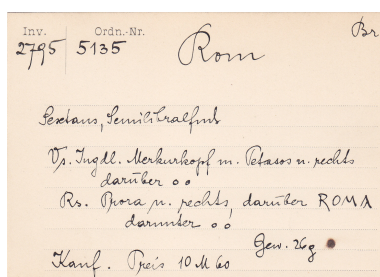 Inv. Ordn.-Nr. Br
2795 5135 Rom
Sextans, Semilibralfuß
Vs. Jugdl. Merkurkopf m. Petasos n. rechts
darüber o o
Rs. Prora n. rechts, darüber ROMA
darunter o o
Gew. 26 g
Kauf. Preis 10 M 60